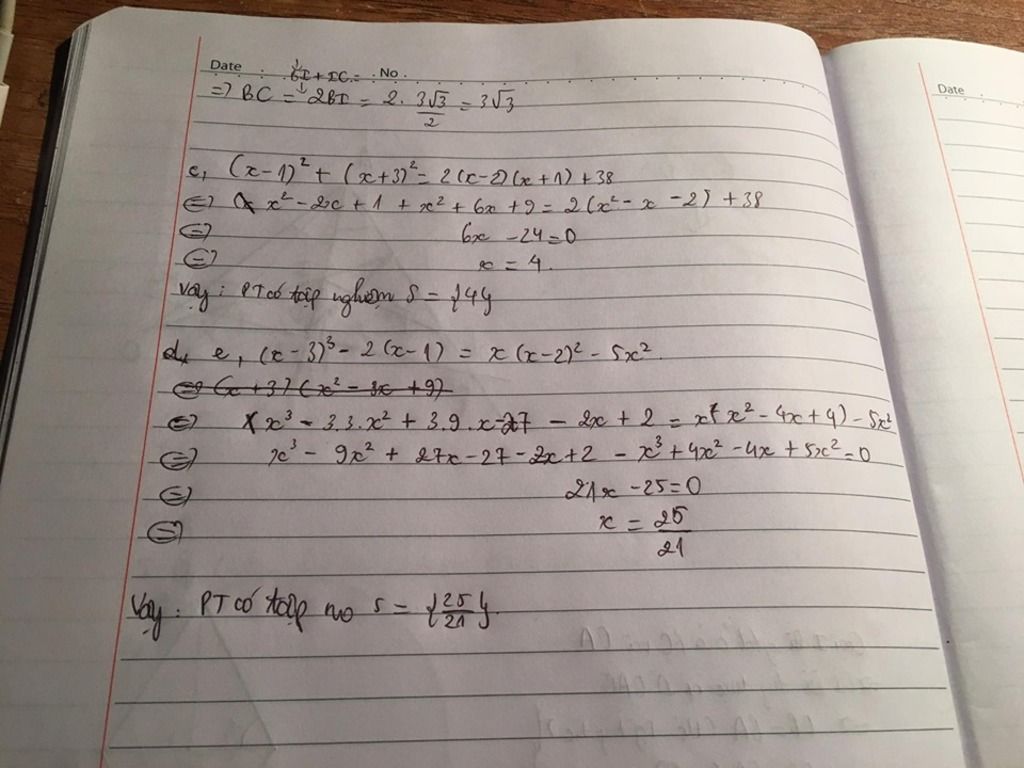 Date . BI + IC = . No .
=> BC = 2BI = 2. 3√3/2 = 3√3
c, (x-1)² + (x+3)² = 2(x-2)(x+1) + 38
<=> x² - 2x + 1 + x² + 6x + 9 = 2(x² - x - 2) + 38
<=> 6x - 24 = 0
<=> x = 4.
Vậy : PT có tập nghiệm S = {4}
d, e, (x-3)³ - 2(x-1) = x(x-2)² - 5x².
<=> (x+3)(x² - 3x + 9)
<=> x³ - 3.3.x² + 3.9.x - 27 - 2x + 2 = x(x² - 4x + 4) - 5x²
<=> x³ - 9x² + 27x - 27 - 2x + 2 - x³ + 4x² - 4x + 5x² = 0
<=> 21x - 25 = 0
<=> x = 25/21
Vậy : PT có tập no S = {25/21}.
Date .